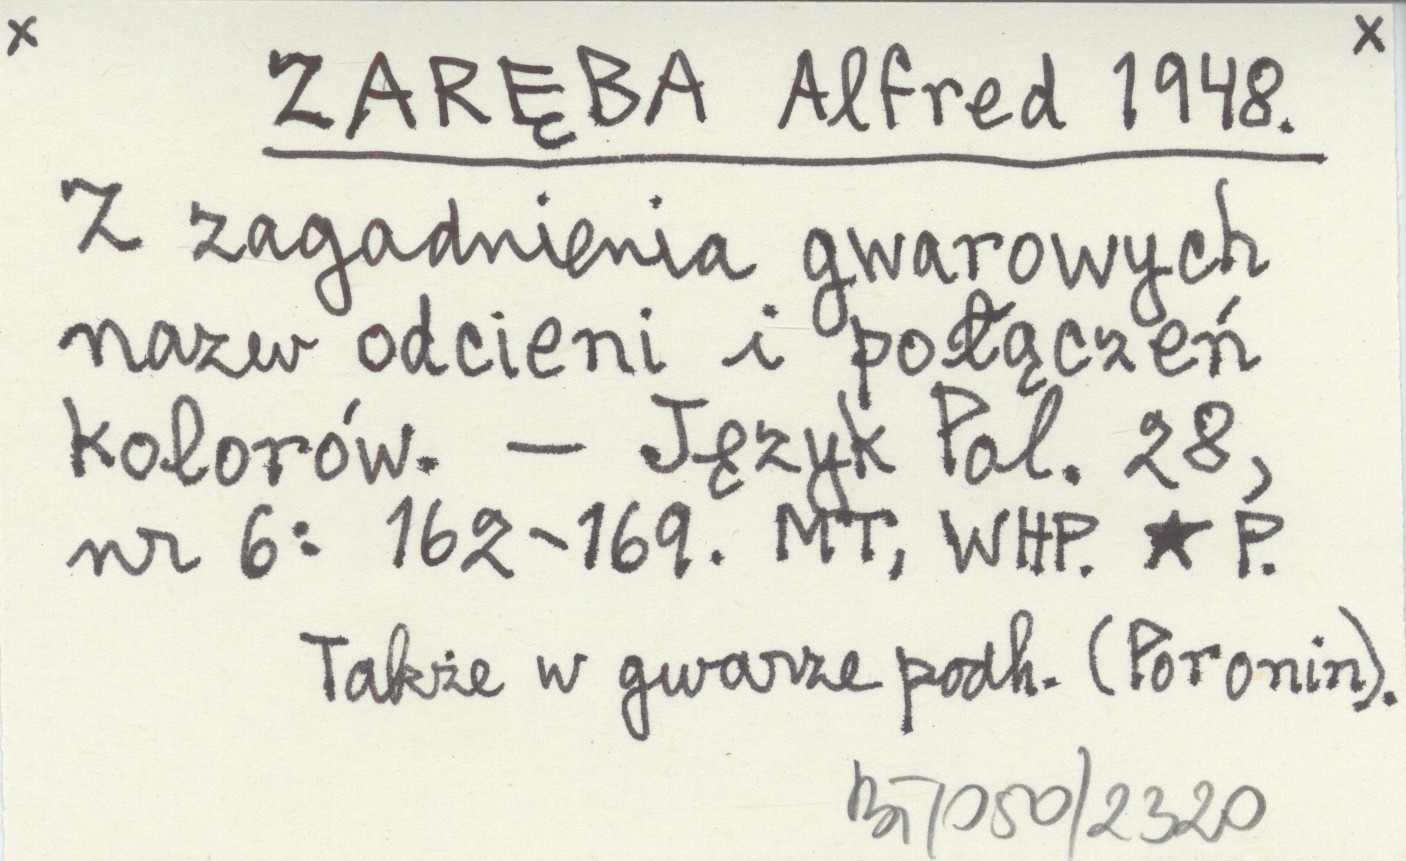 x x
ZARĘBA Alfred 1948.
Z zagadnienia gwarowych
nazw odcieni i połączeń
kolorów. — Język Pol. 28,
nr 6: 162-169. MT, WHP. ★ P.
Także w gwarze podh. (Poronin).
/050/2320